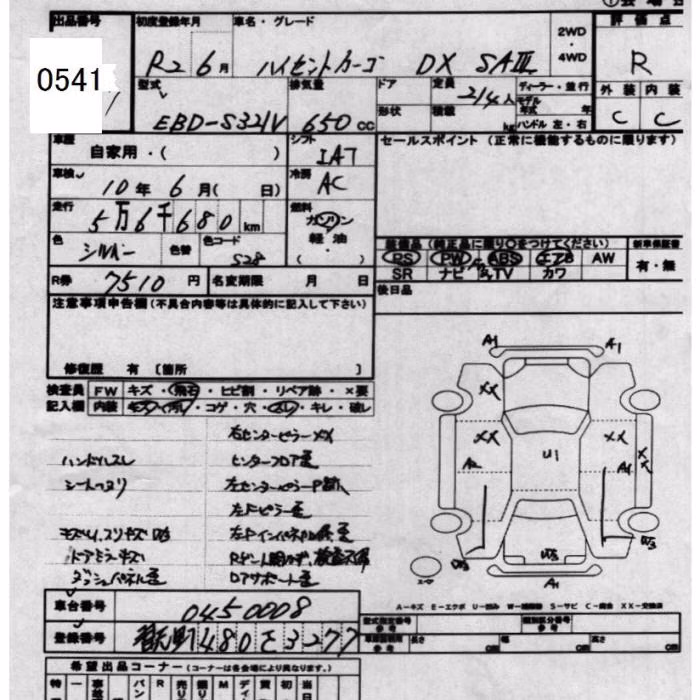 出品番号 初度登録年月 車名・グレード 2WD・4WD 評価点
0541 R2 6月 ハイゼットカーゴ DX SAⅢ R
型式 排気量 ドア 定員 ディーラー・並行 外装 内装
EBD-S321V 650 cc 2/4人 モデル年式 年 C C
形状 積載 kg ハンドル 左・右
車歴 自家用・( ) シフト IAT セールスポイント (正常に機能するものに限ります)
車検 10年 6月( 日) 冷房 AC
走行 5万6千680km 燃料 ガソリン・軽油・( )
色 シルバー 色替 色コード S28
装備品 (純正品に限り○をつけてください) 新車保証書
PS PW ABS エアB AW 有・無
SR ナビ TV カワ
R券 7510円 名変期限 月 日 後日品
注意事項申告欄(不具合内容等は具体的に記入して下さい)
修復歴 有 [箇所 ]
検査員 FW キズ・飛石・ヒビ割・リペア跡・×要
記入欄 内装 キズ・汚れ・コゲ・穴・スレ・キレ・破レ
右センターピラーXX
ハンドルスレ センターフロア歪
シートヘタリ
左Fピラー歪
ドアミラーキズ
ダッシュパネル歪
A1 A1
XX
XX XX
A2 U1 A1 XX
W3 W3 W3
A1
A-キズ E-エクボ U-凹み W-補修跡 S-サビ C-腐食 XX-交換済
車台番号 0450008
型式指定番号 参考 類別区分番号 参考
登録番号 480 さ 3277
長さ cm 幅 cm 高さ cm
希望出品コーナー (コーナーは各会場により異なります。)